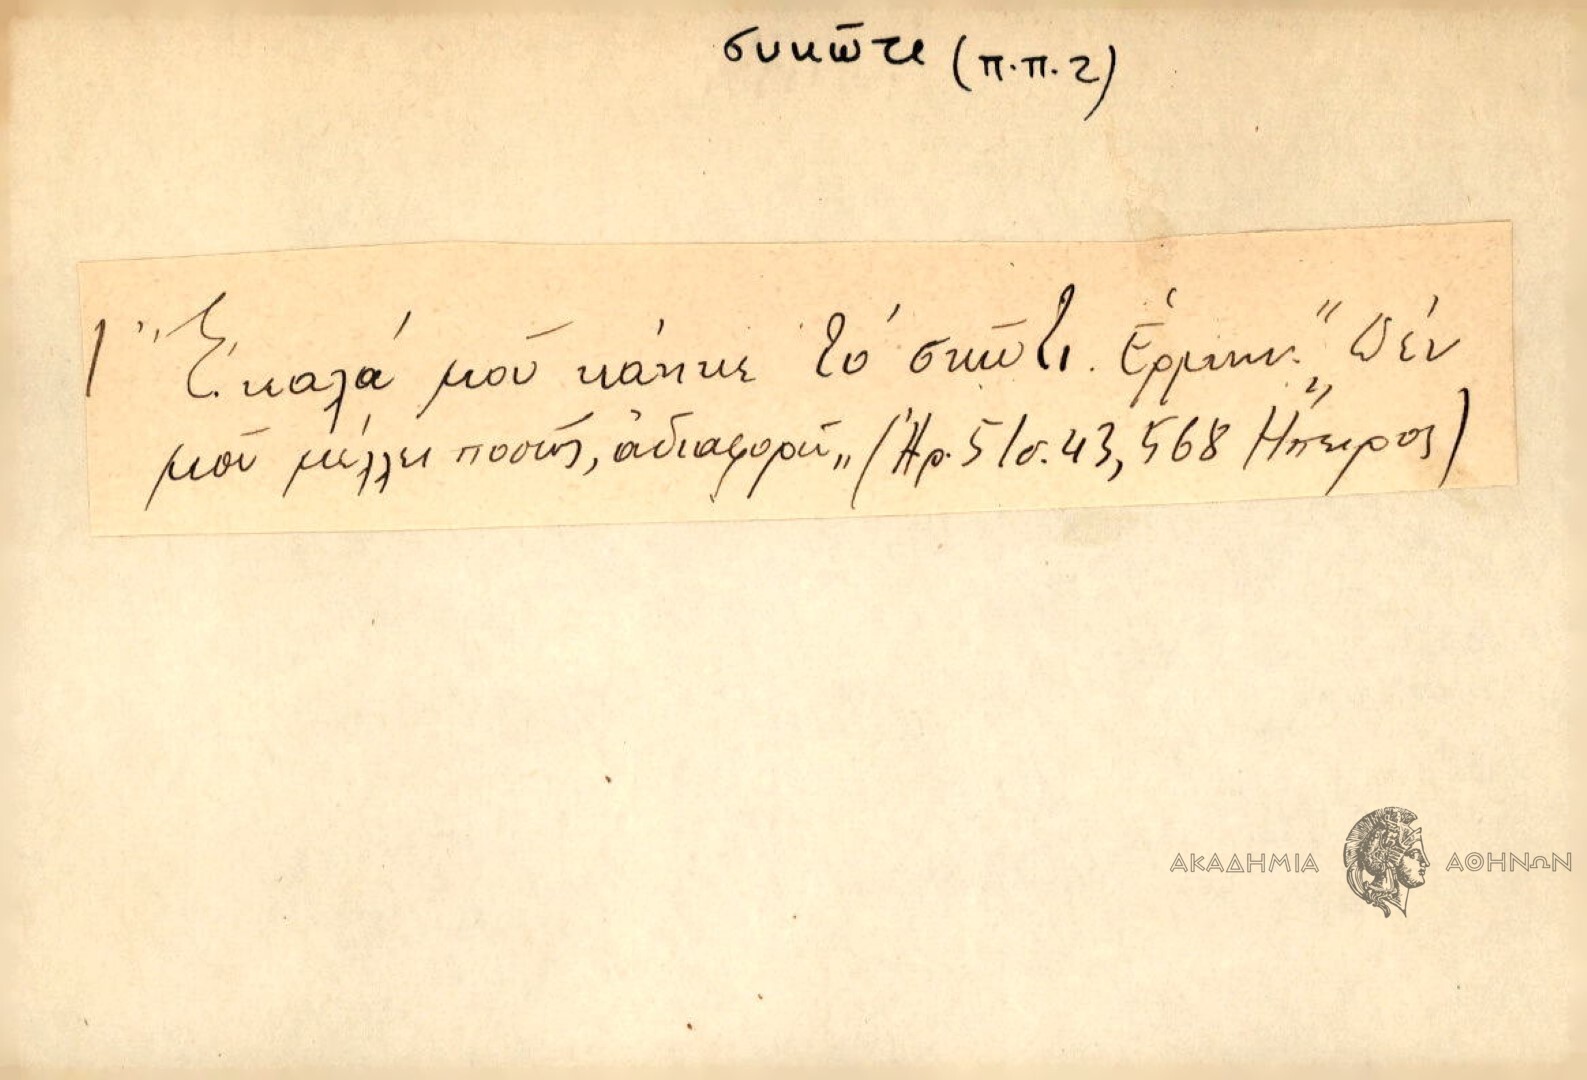 συκῶτι (π.π. 2)
"Σκαλά μοῦ κάηκε τὸ σκῶτι. Ἑρμην." Δέν
μοῦ μέλλει ποσῶς, ἀδιαφορῶ„ (Ἀρ. 51 σ. 43, 568 Ἤπειρος)
ΑΚΑΔΗΜΙΑ ΑΘΗΝΩΝ